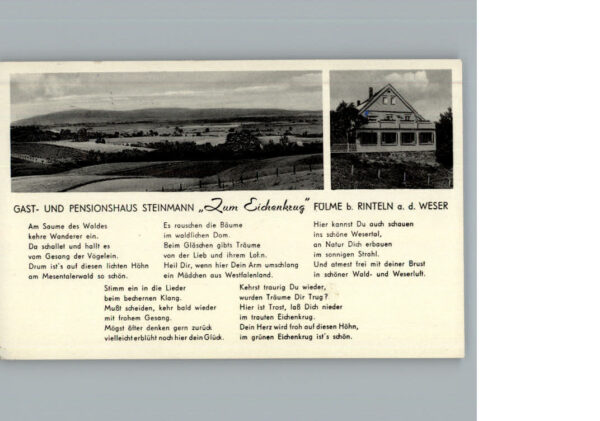 GAST- UND PENSIONSHAUS STEINMANN „Zum Eichenkrug" FÜLME b. RINTELN a. d. WESER
Am Saume des Waldes
kehre Wanderer ein.
Da schallet und hallt es
vom Gesang der Vögelein.
Drum ist's auf diesen lichten Höhn
am Mesentalerwald so schön.
Es rauschen die Bäume
im waldlichen Dom.
Beim Gläschen gibts Träume
von der Lieb und ihrem Loh.n.
Heil Dir, wenn hier Dein Arm umschlang
ein Mädchen aus Westfalenland.
Hier kannst Du auch schauen
ins schöne Wesertal,
an Natur Dich erbauen
im sonnigen Strahl.
Und atmest frei mit deiner Brust
in schöner Wald- und Weserluft.
Stimm ein in die Lieder
beim bechernen Klang.
Mußt scheiden, kehr bald wieder
mit frohem Gesang.
Mögst öfter denken gern zurück
vielleicht erblüht noch hier dein Glück.
Kehrst traurig Du wieder,
wurden Träume Dir Trug?
Hier ist Trost, laß Dich nieder
im trauten Eichenkrug.
Dein Herz wird froh auf diesen Höhn,
im grünen Eichenkrug ist's schön.